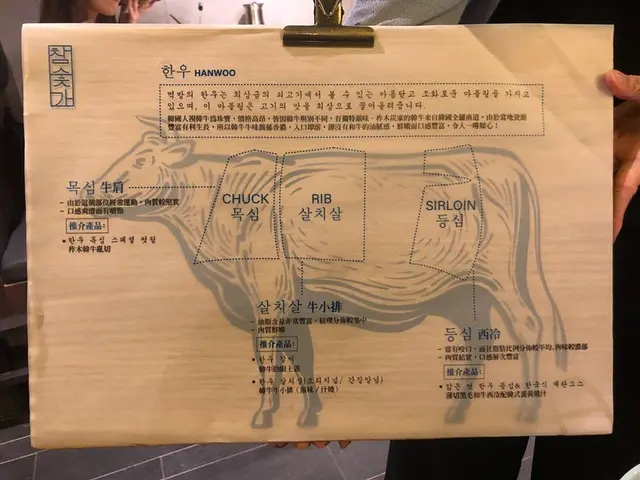 참숯가
한우 HANWOO
명방의 한우는 최상급의 쇠고기에서 볼 수 있는 아름답고 조화로운 마블링을 가지고
있으며, 이 마블링은 고기의 맛을 최상으로 끌어올려줍니다.
韓國人視韓牛為珍寶,價格高昂,皆因韓牛與別不同,有獨特韻味。柞木炭家的韓牛來自韓國全羅南道,由於當地資源
豐富有利生長,所以韓牛味飽郁香濃,入口即溶,卻沒有和牛的油膩感,鮮嫩而口感豐富,令人一嚐傾心!
목심 牛肩
- 由於這個部位經常運動,肉質較堅實
- 口感爽滑而有嚼勁
推介產品:
• 한우 목심 스페셜 컷팅
柞木韓牛亂切
CHUCK
목심
RIB
살치살
SIRLOIN
등심
살치살 牛小排
- 油脂含量非常豐富,紋理分佈較集中
- 肉質鮮嫩
推介產品:
• 한우 갈비
韓牛肋眼上蓋
• 한우 살치살(오리지널/ 간장양념)
韓牛牛小排 (原味 / 汁燒)
등심 西冷
- 富有咬口,而且脂肪比例分佈較平均,肉味較濃郁
- 肉質結實,口感層次豐富
推介產品:
• 얇은 컷 한우 등심& 한국식 계란소스
薄切黑毛和牛西冷配韓式蛋黃燒汁